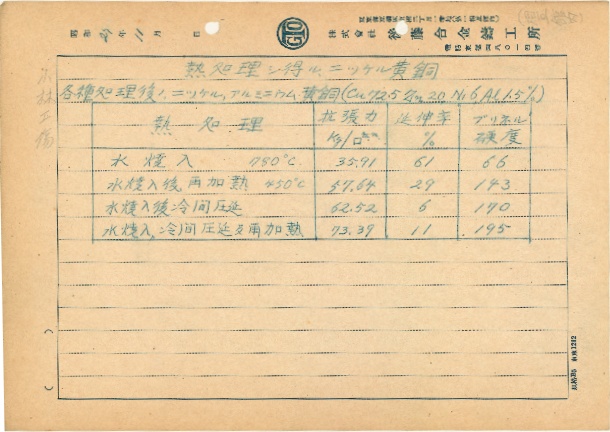 昭和 21 年 11 月 日
株式會社 後藤合金鑄工所
熱処理シ得ル、ニッケル黄銅
各種処理後ノ、ニッケル、アルミニウム、黄銅(Cu 72.5 Zn 20 Ni 6 Al 1.5%)
熱処理 抗張力 Kg/□mm 延伸率 % ブリネル硬度
水焼入 780°C. 35.91 61 66
水焼入後、再加熱 450°C 57.64 29 143
水焼入後冷間圧延 62.52 6 170
水焼入、冷間圧延及再加熱 73.39 11 195